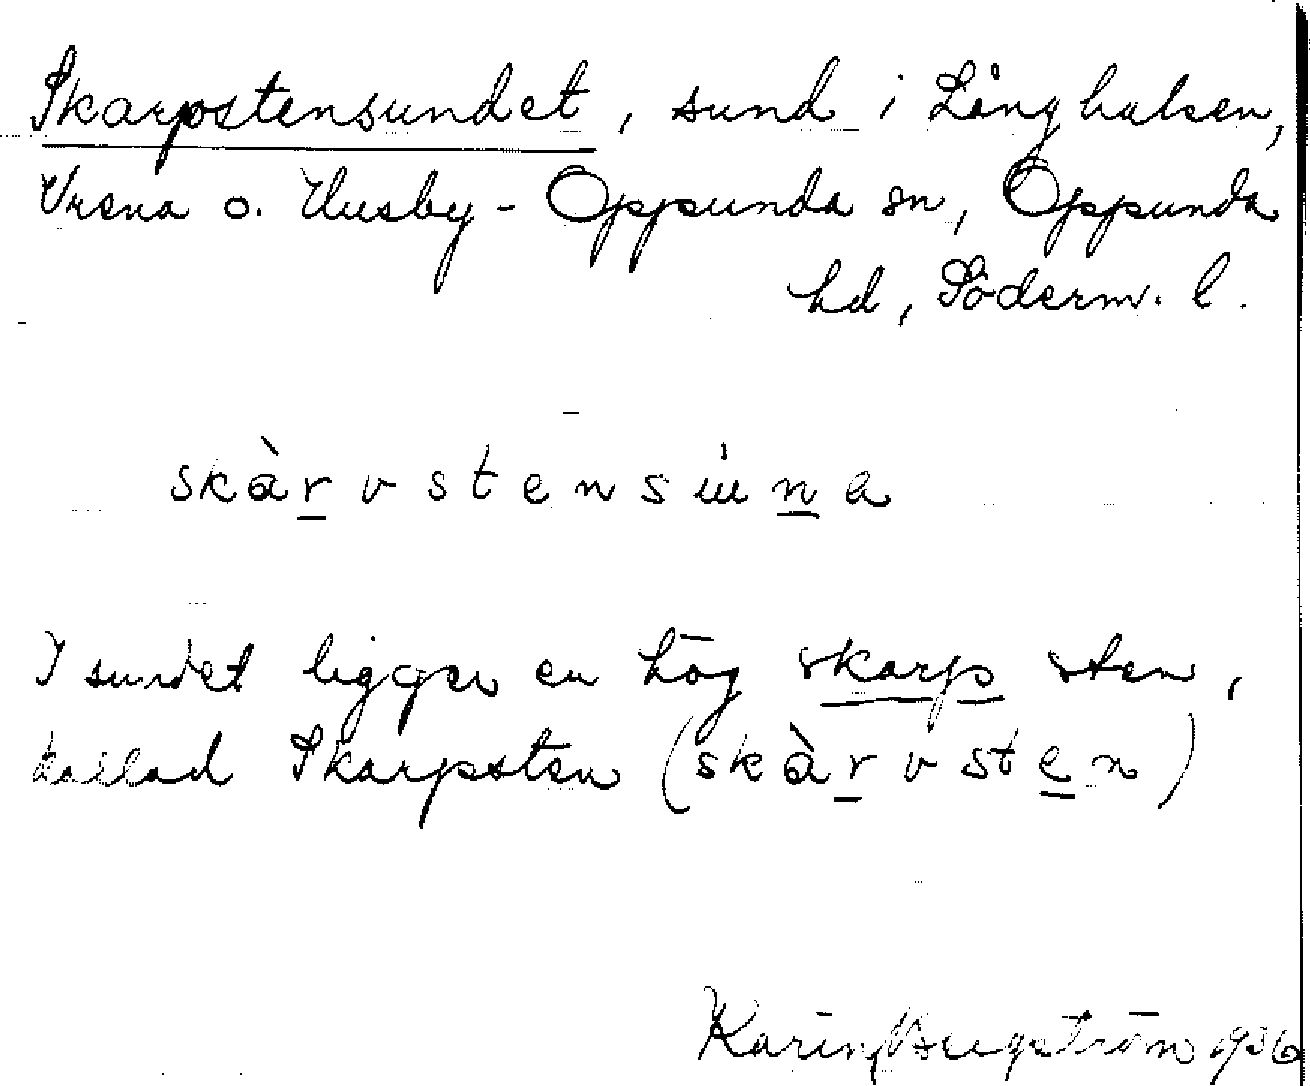 Skarpstensundet, sund i Långhalsen,
Vrena o. Husby-Oppunda sn, Oppunda
hd, Söderm. l.
skàrvstensɯ́na
I sundet ligger en hög skarp sten,
kallad Skarpsten (skàrvsten)
Karin Bergström 1936